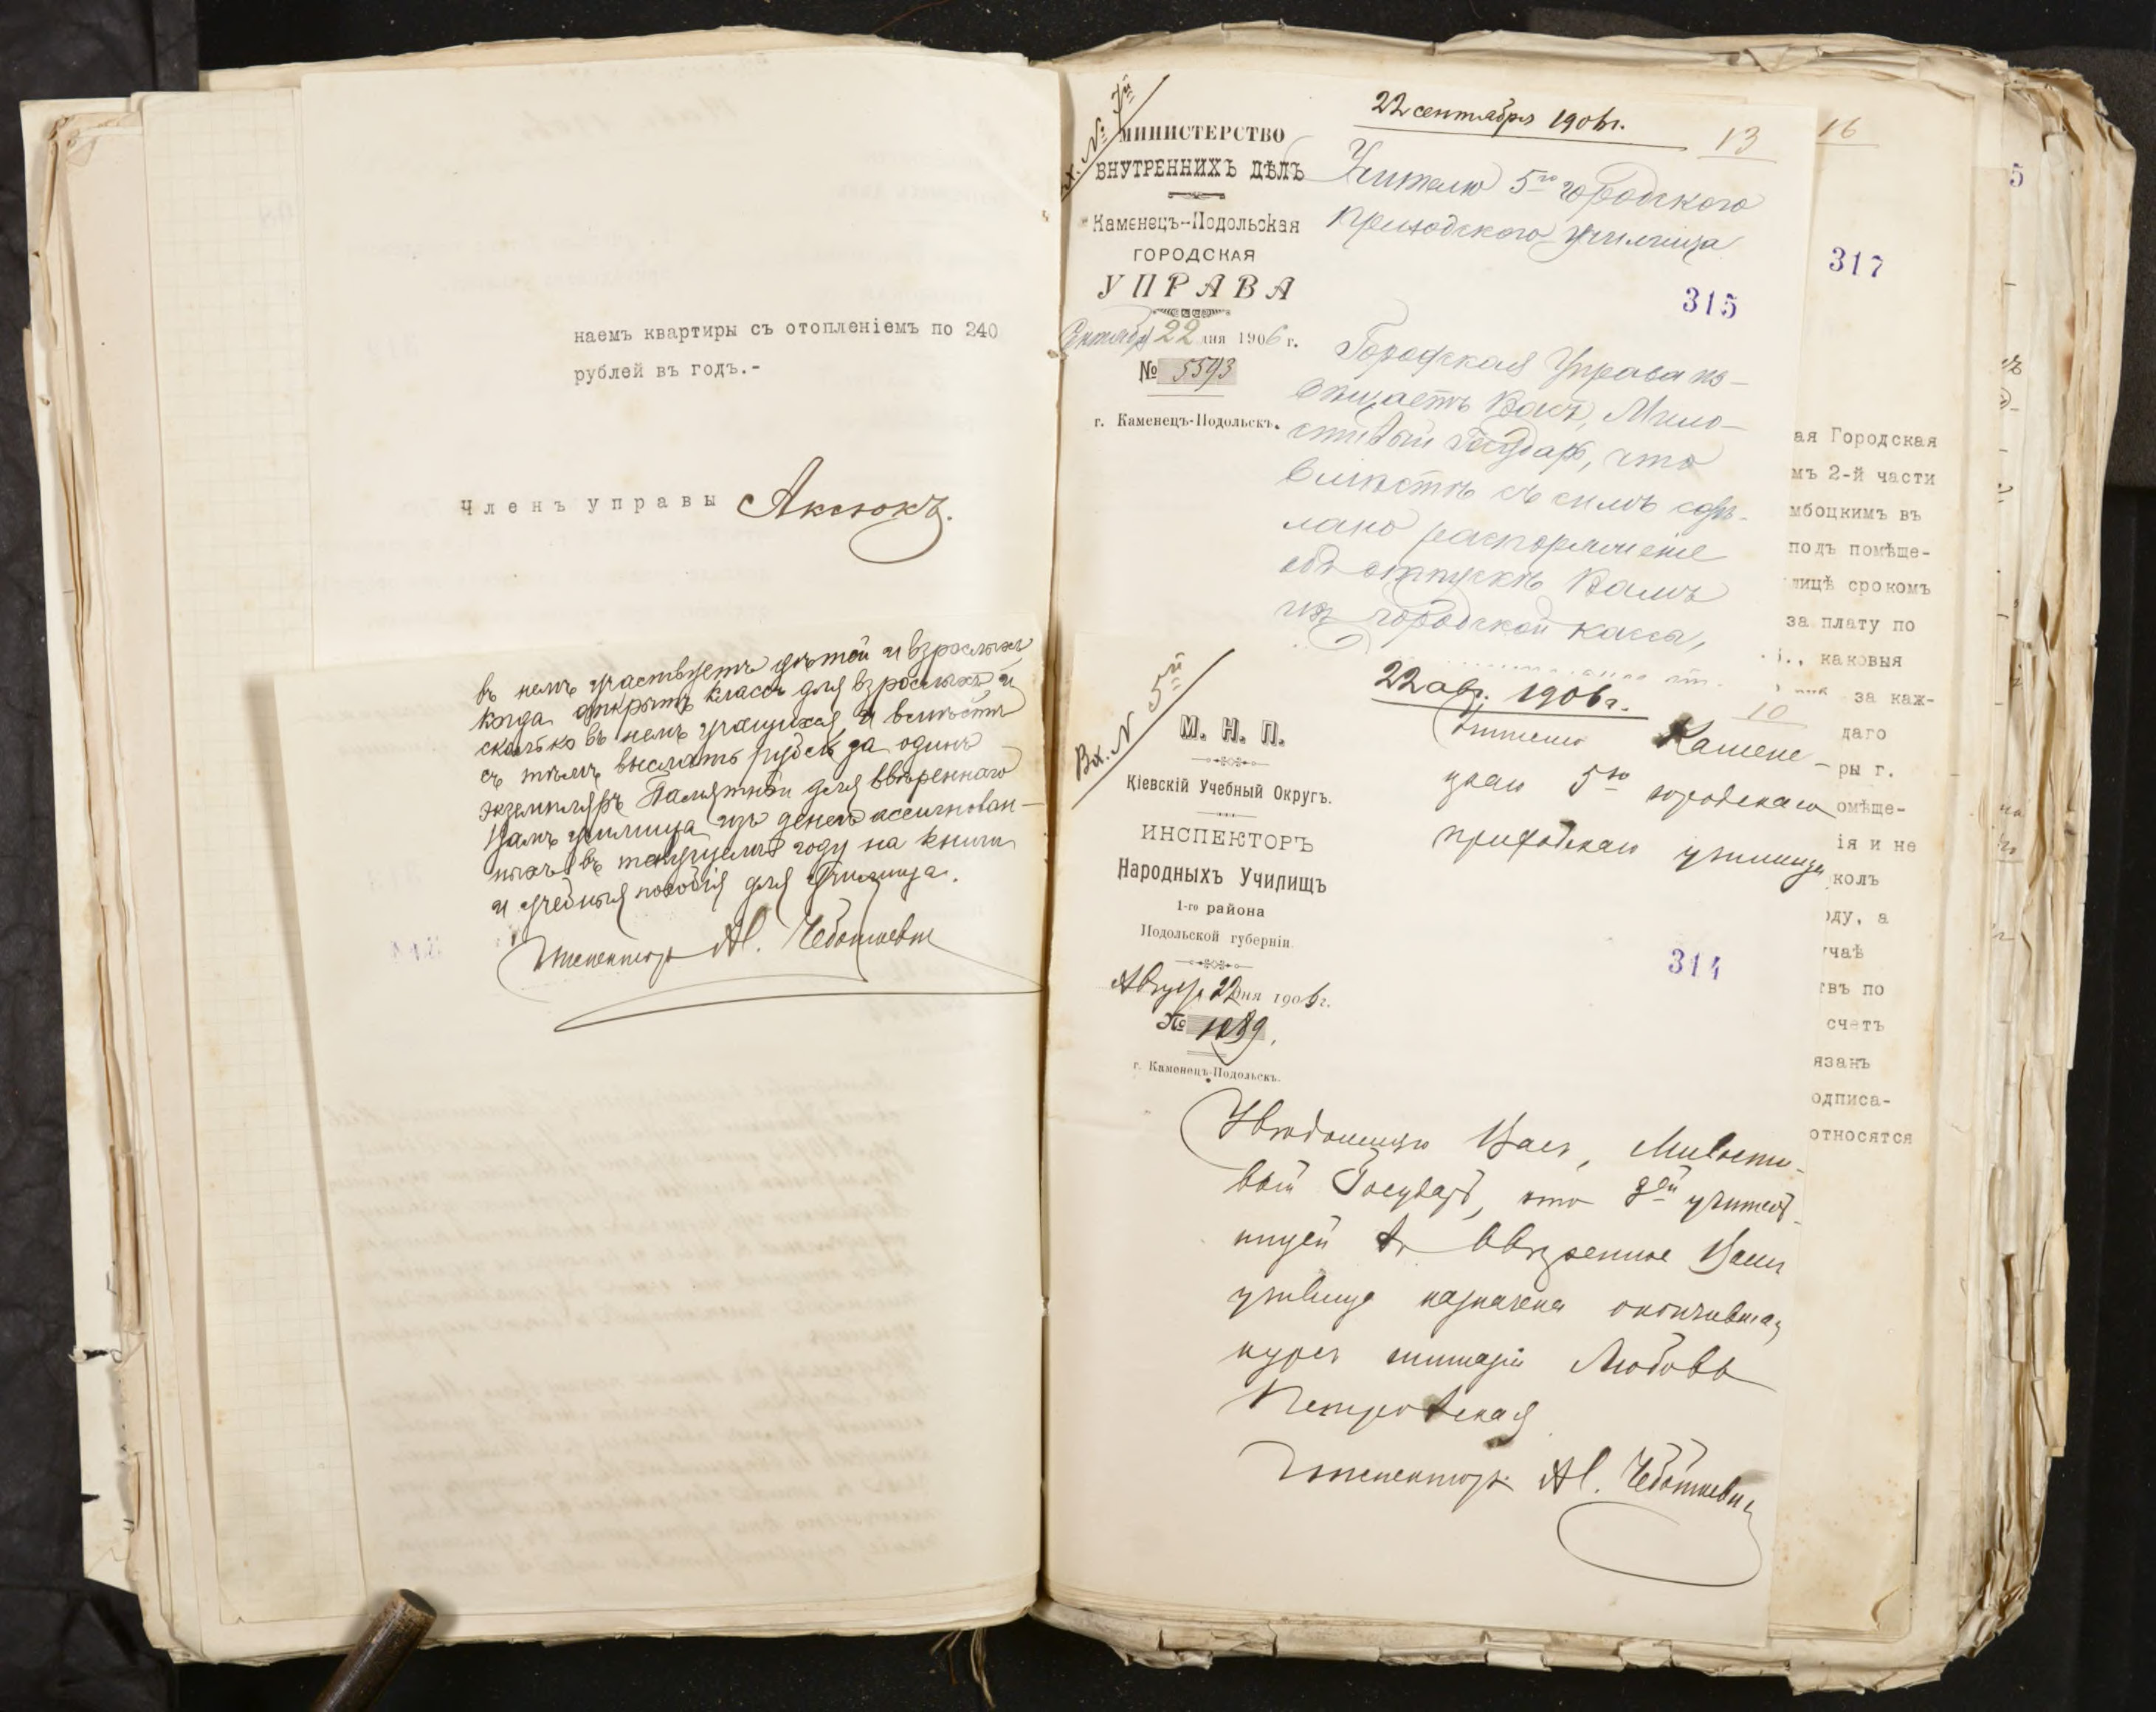 наемъ квартиры съ отопленіемъ по 240
рублей въ годъ.-
Членъ управы Аксюкъ.
въ немъ участвуетъ дѣтей и взрослыхъ,
когда открытъ классъ для взрослыхъ и
сколько въ немъ учащихся, и вмѣстѣ
съ тѣмъ выслать рубль за одинъ
экземпляръ Памятной для ввѣреннаго
Вамъ училища изъ денегъ ассигнован-
ныхъ въ текущемъ году на книги
и учебныя пособія для училища.
Инспекторъ Ал.
Вх. № 7й
22 сентября 1906 г.
13
МИНИСТЕРСТВО
ВНУТРЕННИХЪ ДѢЛЪ
Каменецъ-Подольская
ГОРОДСКАЯ
УПРАВА
Сентября 22 дня 1906 г.
№ 5593
г. Каменецъ-Подольскъ.
Учителю 5го городского
приходского училища
315
Городская Управа из-
вѣщаетъ Васъ, Мило-
стивый Государь, что
вмѣстѣ съ симъ сдѣ-
лано распоряженіе
объ отпускѣ Вамъ
изъ городской кассы,
Вх. № 5й
22 авг. 1906 г.
10
М. Н. П.
Кіевскій Учебный Округъ.
ИНСПЕКТОРЪ
Народныхъ Училищъ
1-го района
Подольской губерніи
Августа 22 дня 1906 г.
№ 1089.
г. Каменецъ-Подольскъ.
Учителю Камене-
цкаго 5го городскаго
приходскаго училища
314
Увѣдомляю Васъ, Милости-
вый Государь, что 2ой учитель-
ницей въ ввѣренное Вамъ
училище назначена окончившая
курсъ гимназіи Любовь
Петровская
Инспекторъ Ал.
16
317
ая Городская
мъ 2-й части
мбоцкимъ въ
подъ помѣще-
лицѣ срокомъ
за плату по
каковыя
за каж-
даго
ры г.
омѣще-
ія и не
колъ
оду, а
учаѣ
твъ по
счетъ
язанъ
одписа-
относятся
5